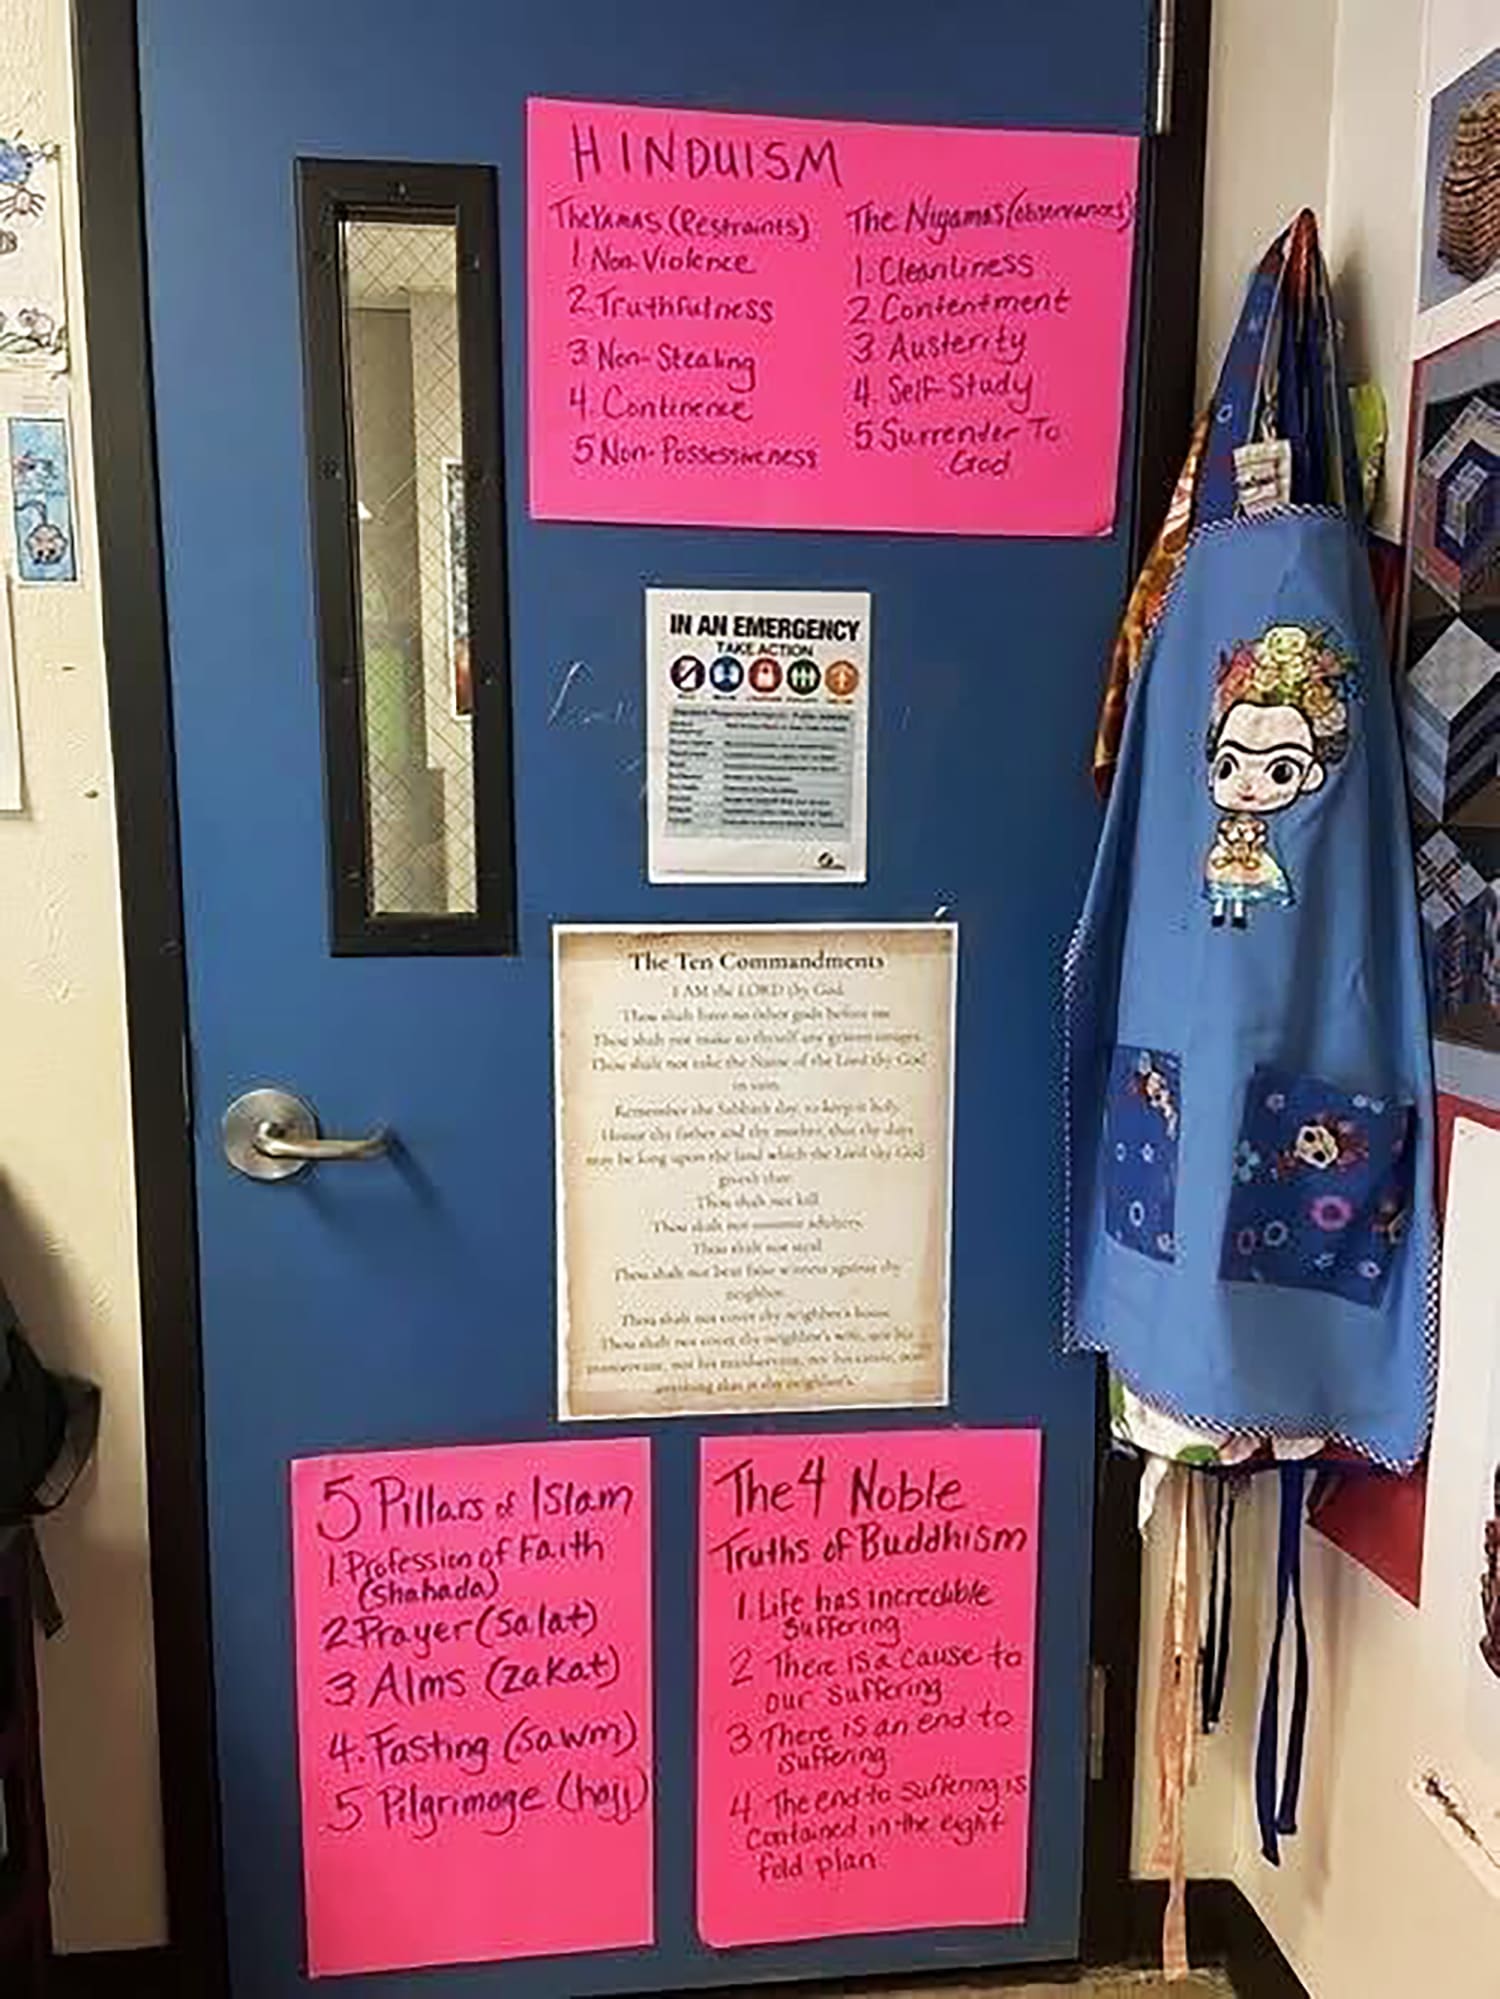 HINDUISM
The YAMAS (Restraints)
1 Non-Violence
2. Truthfulness
3 Non-Stealing
4. Continence
5 Non-Possessiveness
The Niyamas (observances)
1. Cleanliness
2 Contentment
3 Austerity
4. Self-Study
5 Surrender To
God
IN AN EMERGENCY
TAKE ACTION
The Ten Commandments
I AM the LORD thy God.
Thou shalt have no other gods before me.
Thou shalt not make to thyself any graven images.
Thou shalt not take the Name of the Lord thy God
in vain.
Remember the Sabbath day, to keep it holy.
Honor thy father and thy mother, that thy days
may be long upon the land which the Lord thy God
giveth thee.
Thou shalt not kill.
Thou shalt not commit adultery.
Thou shalt not steal.
Thou shalt not bear false witness against thy
neighbor.
Thou shalt not covet thy neighbor's house.
Thou shalt not covet thy neighbor's wife, nor his
manservant, nor his maidservant, nor his cattle, nor
anything that is thy neighbor's.
5 Pillars of Islam
1. Profession of Faith
(Shahada)
2 Prayer (salat)
3 Alms (zakat)
4. Fasting (sawm)
5 Pilgrimage (hajj)
The 4 Noble
Truths of Buddhism
1. Life has incredible
suffering
2 There is a cause to
our suffering
3 There is an end to
suffering
4. The end to suffering is
contained in the eight
fold plan.